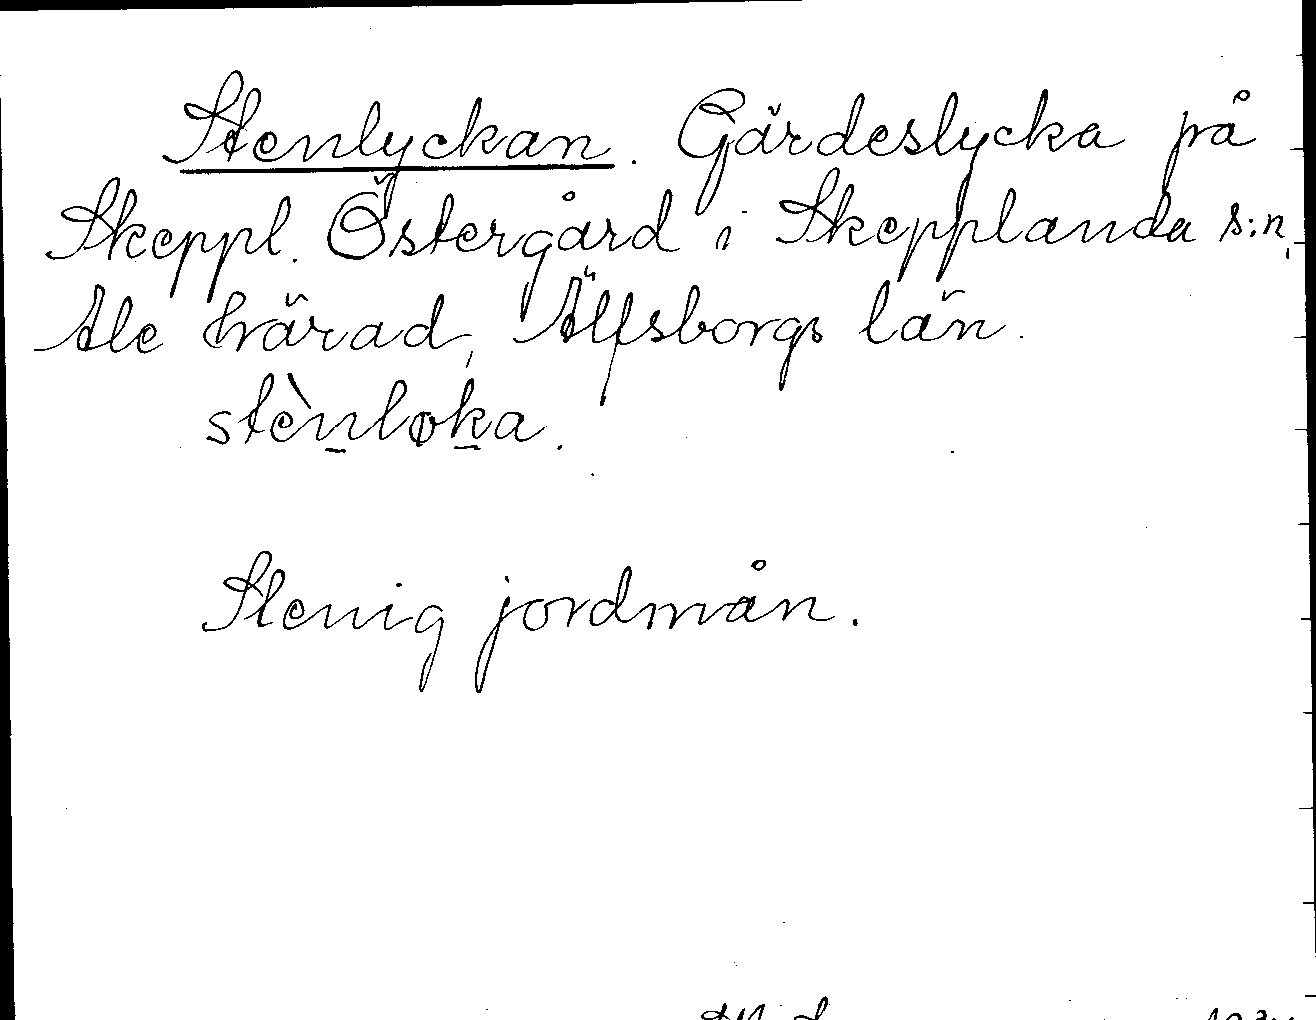 Stenlyckan. Gärdeslycka på
Skeppl. Östergård i Skepplanda s:n,
Ale härad, Älfsborgs län.
stènløka.
Stenig jordmån.